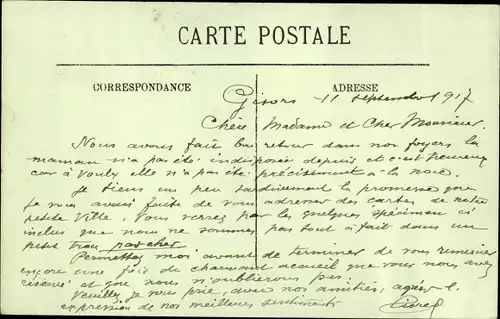 CARTE POSTALE
CORRESPONDANCE
ADRESSE
Gisors 11 septembre 1917
Chère Madame et Cher Monsieur.
Nous avons fait bon retour dans nos foyers la
maman n'a pas été indisposée depuis et c'est heureux
car à Vouly elle n'a pas été précisément à la noce.
Je tiens un peu tardivement la promesse que
je vous avais faite de vous adresser des cartes de notre
petite Ville. Vous verrez par les quelques spécimen ci
inclus que nous ne sommes pas tout à fait dans un
petit trou pas cher
Permettez moi avant de terminer de vous remercier
encore une fois du charmant accueil que vous nous avez
réservé et que nous n'oublierons pas.
Veuillez je vous prie, avec nos amitiés, agréer l'
expression de nos meilleurs sentiments